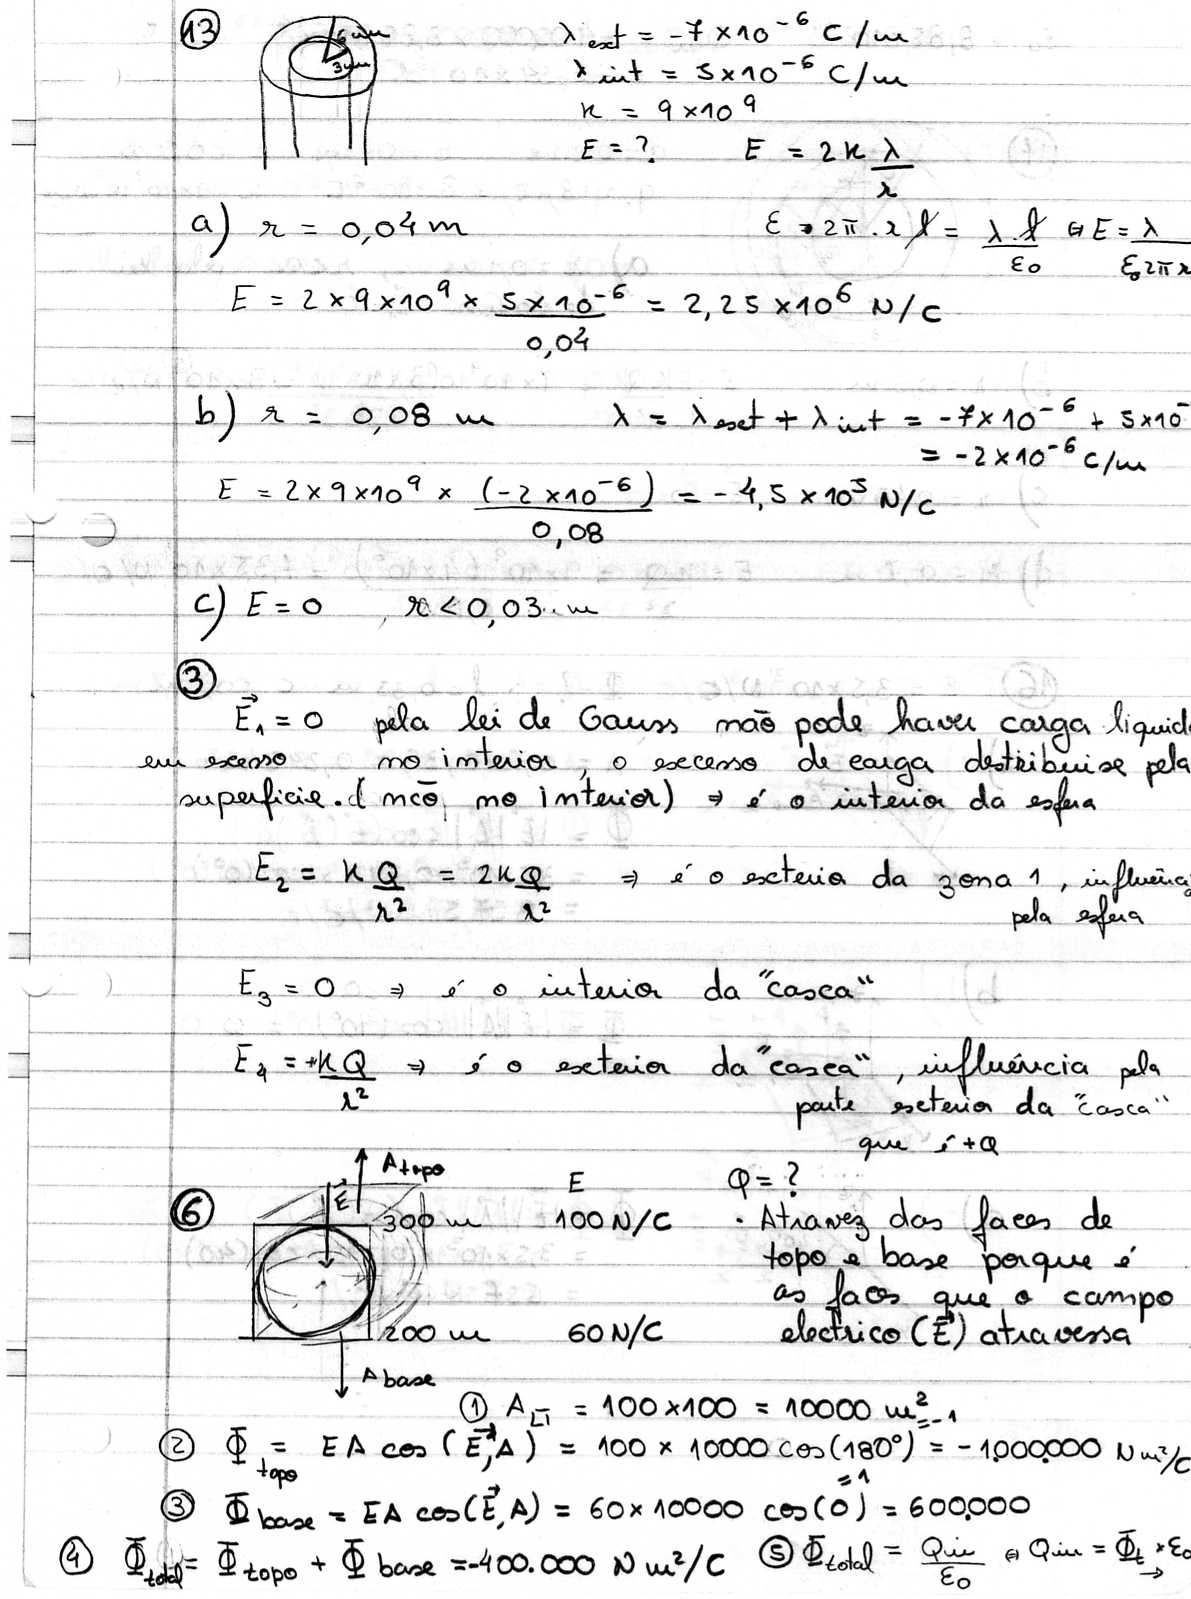 13
6 cm
3 cm
λ ext = -7×10⁻⁶ C/m
λ int = 5×10⁻⁶ C/m
K = 9×10⁹
E = ? E = 2K λ/r
a) r = 0,04 m E · 2π . r l = λ . l/ε₀ ⇔ E = λ/ε₀2πr
E = 2 × 9×10⁹ × 5×10⁻⁶/0,04 = 2,25 ×10⁶ N/C
b) r = 0,08 m λ = λ ext + λ int = -7×10⁻⁶ + 5×10⁻
= -2×10⁻⁶ C/m
E = 2×9×10⁹ × (-2×10⁻⁶)/0,08 = -4,5 ×10⁵ N/C
c) E = 0 , r < 0,03 m
3
E⃗₁ = 0 pela lei de Gauss não pode haver carga liquid
em excesso no interior, o excesso de carga destribuise pela
superficie. (não no interior) ⇒ é o interior da esfera
E₂ = K Q/r² = 2K Q/r² ⇒ é o exterior da zona 1, influênci
pela esfera
E₃ = 0 ⇒ é o interior da "casca"
E₄ = +KQ/r² ⇒ é o exterior da "casca", influência pela
parte exterior da "casca"
que é +Q
6
A topo
E⃗
E Q = ?
300 m 100 N/C . Atravez das faces de
topo e base porque é
as faces que o campo
200 m 60 N/C electrico (E⃗) atravessa
A base
① A_LT = 100×100 = 10000 m²
= -1
② Φ topo = E A cos (E⃗,A) = 100 × 10000 cos(180°) = -1000.000 N m²/C
= 1
③ Φ base = EA cos(E⃗,A) = 60×10000 cos(0) = 600.000
④ Φ total = Φ topo + Φ base = -400.000 N m²/C ⑤ Φ total = Q in/ε₀ ⇔ Q in = Φt × ε₀
→